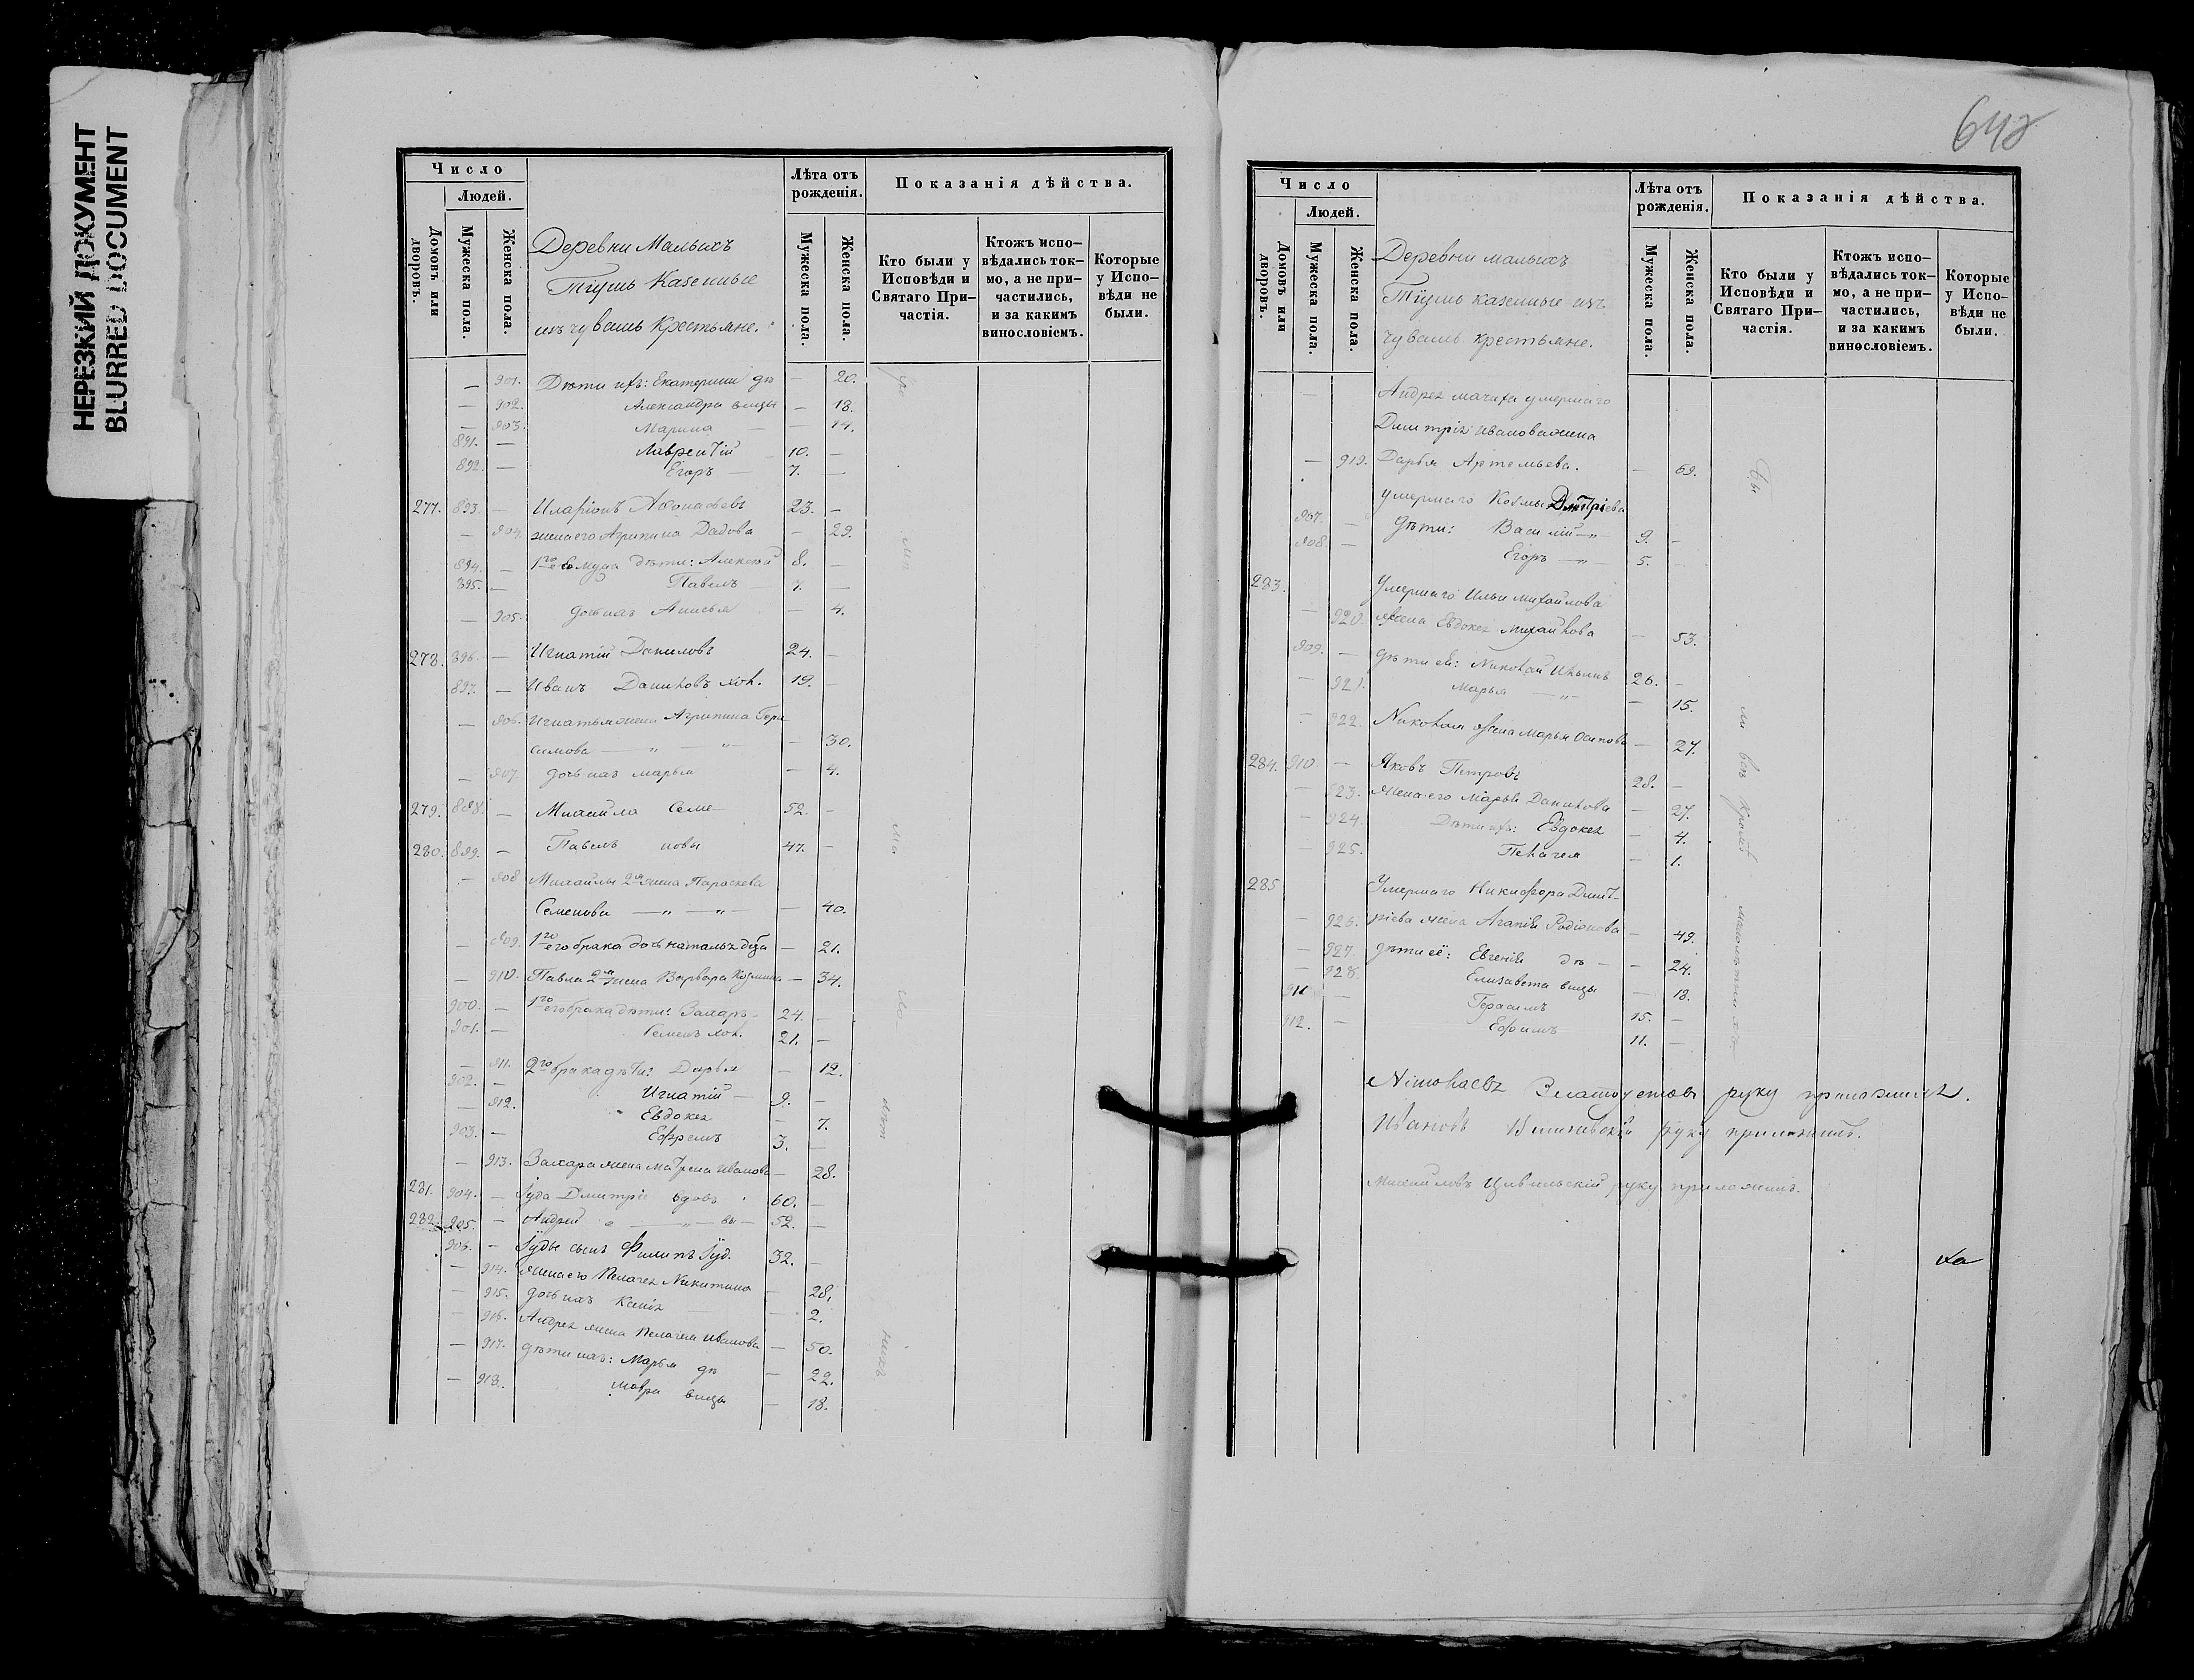 НЕРЕЗКИЙ ДОКУМЕНТ
BLURRED DOCUMENT
Число
Людей.
Домовъ или дворовъ.
Мужеска пола.
Женска пола.
Деревни Малыхъ
Тіуш Казенные
изъ чувашъ Крестьяне.
Лѣта отъ рожденія.
Мужеска пола.
Женска пола.
Показанія дѣйства.
Кто были у Исповѣди и Святаго При-частія.
Ктожъ испо-вѣдались ток-мо, а не при-частились, и за какимъ винословіемъ.
Которые у Испо-вѣди не были.
— 901. Дѣти ихъ: Екатерина дѣ — 20.
— 902. Александра вицы — 18.
— 903. Марина — — 14.
891. — Лаврентій 10. —
892. — Егоръ — 7. —
277. 893. — Иларіонъ Аѳонасьевъ 23. —
— 904. жена его Агрипина Дадова — 29.
894. — 1го ея мужа дѣти: Алексѣй 8. —
895. — Павелъ — 7. —
— 905. дочь ихъ Анисья — 4.
278. 896. — Игнатій Даниловъ 24. —
897. — Иванъ Даниловъ хол. 19. —
— 906. Игнатья жена Агрипина Гера
симова — „ — „ — — 30.
— 907. дочь ихъ Марья — 4.
279. 898. — Михайла Семе 52. —
280. 899. — Павелъ новы 47. —
— 908 Михайлы 2я жена Параскева
Семенова — „ — „ — — 40.
— 909. 1го его брака дочь Наталья дѣва — 21.
— 910. Павла 2я жена Варвара Козмина — 34.
900. — 1го его брака дѣти: Захаръ — 24. —
901. — Семенъ хол. 21. —
— 911. 2го брака дѣти: Дарья — 12.
902. — Игнатій — 9. —
— 912. Евдокея — 7.
903. — Ефремъ 3. —
— 913. Захара жена Матрена Иванова — 28.
281. 904. — Іуда Дмитріе вдовъ 60. —
282. 905. — Андрей е — „ — вы — 52. —
906. — Іуды сынъ Филипъ Іуд. 32. —
— 914. жена его Пелагея Никитина — 28.
— 915. дочь ихъ Ксенія — — 2.
— 916. Андрея жена Пелагея Иванова — 50.
— 917. дѣти ихъ: Марья дѣ — 22.
— 918. Мавра вицы — 18.
648
Число
Людей.
Домовъ или дворовъ.
Мужеска пола.
Женска пола.
Деревни малыхъ
Тіуш казенные изъ
чувашъ крестьяне.
Лѣта отъ рожденія.
Мужеска пола.
Женска пола.
Показанія дѣйства.
Кто были у Исповѣди и Святаго При-частія.
Ктожъ испо-вѣдались ток-мо, а не при-частились, и за какимъ винословіемъ.
Которые у Испо-вѣди не были.
— Андрея мачиха умершаго
Дмитрія Иванова жена
— 919. Дарья Артемьева. — 69.
умершаго Козмы Дмитріева
907. — дѣти: Василій — „ — 9. —
908. — Егоръ — „ — 5. —
283. Умершаго Ильи Михайлова
— 920. жена Евдокея Михайлова — 53.
909. — дѣти ей: Николай Ильинъ 26. —
— 921. Марья — „ — — 15.
— 922. Николая жена Марья Осипова — 27.
284. 910. — Яковъ Петровъ 28. —
— 923. жена его Марья Данилова — 27.
— 924. Дѣти ихъ: Евдокея — 4.
— 925. Пелагея — 1.
285 Умершаго Никифора Дмит-
— 926. ріева жена Агапія Родіонова — 49.
— 927. дѣти её: Евгенія дѣ — — 24.
— 928. Елизавета вицы — 18.
911 — Герасимъ 15. —
912. — Ефимъ 11. —
Бы ли всѣ кромѣ малолѣтнихъ
Николаевъ Златоустовъ руку приложилъ.
Ивановъ руку приложилъ.
Михайловъ Цивильскій руку приложилъ.